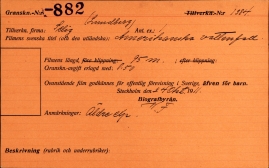 Gransknings-N:r 882 Tillverkn.-N:r 1984
Tillverkn. firma: Selig Lundberg
Filmens svenska titel (och den utländska): Amerikanska vattenfall
Filmens längd, före klippning: 95 m. efter klippning:
Gransknings-avgift erlagd med
Ovanstående film godkännes för offentlig förevisning i Sverige, även för barn.
Stockholm den 24 okt. 1911.
Biografbyrån.
Anmärkningar:
Beskrivning (rubrik och underrubriker):